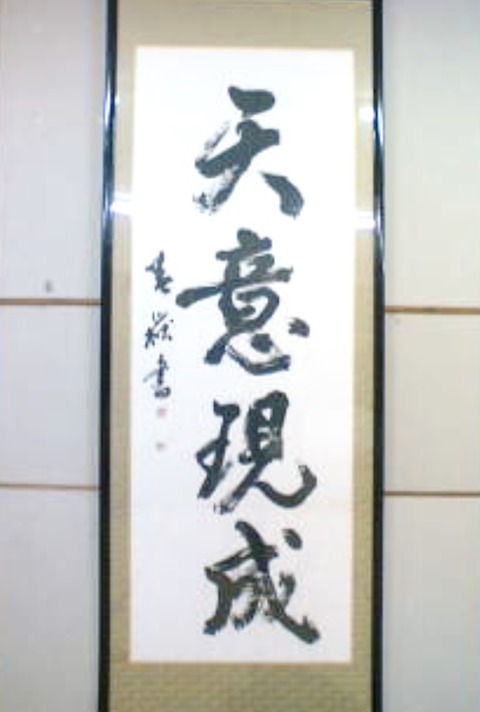 天意現成
書